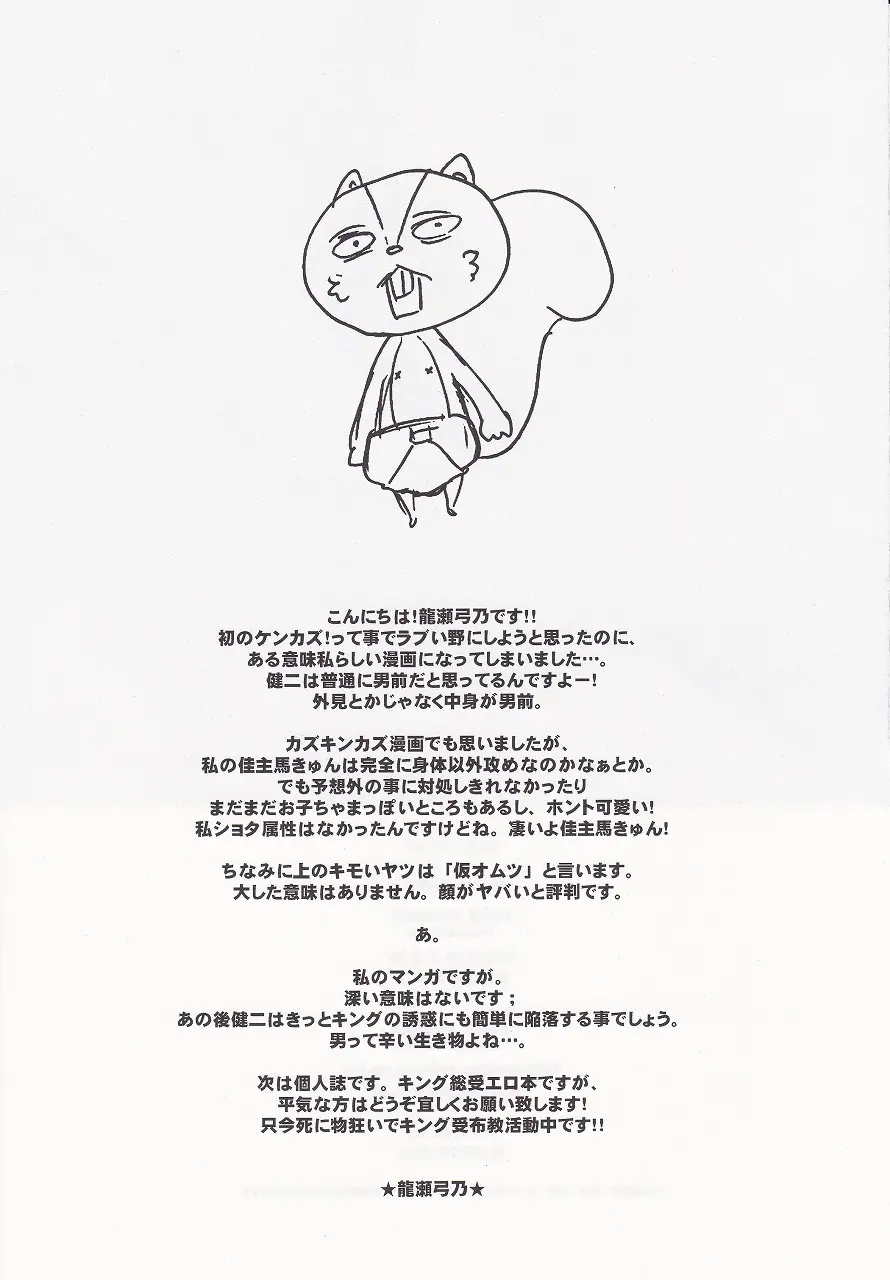 こんにちは!龍瀬弓乃です!!
初のケンカズ!って事でラブい野にしようと思ったのに、
ある意味私らしい漫画になってしまいました…。
健二は普通に男前だと思ってるんですよー!
外見とかじゃなく中身が男前。
カズキンカズ漫画でも思いましたが、
私の佳主馬きゅんは完全に身体以外攻めなのかなぁとか。
でも予想外の事に対処しきれなかったり
まだまだお子ちゃまっぽいところもあるし、ホント可愛い!
私ショタ属性はなかったんですけどね。凄いよ佳主馬きゅん!
ちなみに上のキモいヤツは「仮オムツ」と言います。
大した意味はありません。顔がヤバいと評判です。
あ。
私のマンガですが。
深い意味はないです;
あの後健二はきっとキングの誘惑にも簡単に陥落する事でしょう。
男って辛い生き物よね…。
次は個人誌です。キング総受エロ本ですが、
平気な方はどうぞ宜しくお願い致します!
只今死に物狂いでキング受布教活動中です!!
★龍瀬弓乃★